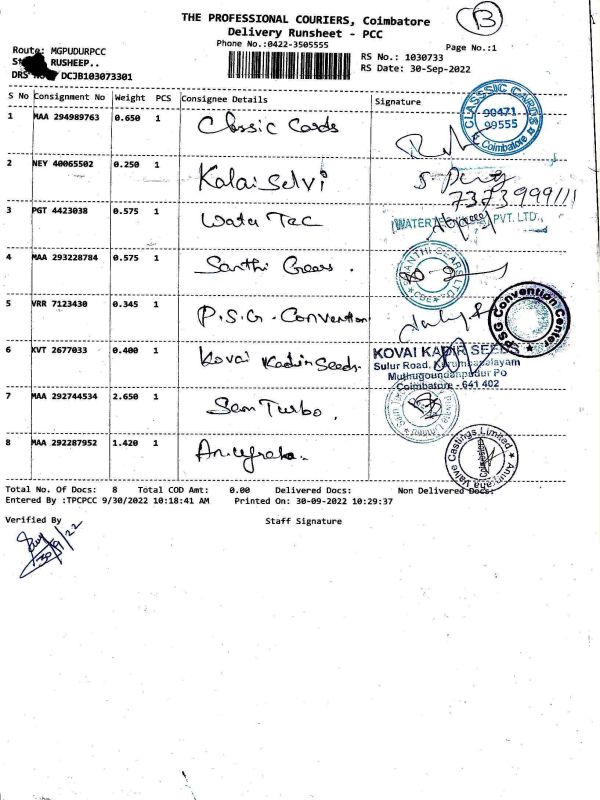 B
THE PROFESSIONAL COURIERS, Coimbatore
Delivery Runsheet - PCC
Phone No.:0422-3505555
Page No.:1
Route: MGPUDURPCC
RUSHEEP..
RS No.: 1030733
RS Date: 30-Sep-2022
DRS No. DCJB103073301
S No Consignment No Weight PCS Consignee Details Signature
1 MAA 294989763 0.650 1 Classic Cards
CLASSSIC CARDS 90471 99555 Coimbatore
2 NEY 40065502 0.250 1 Kalai Selvi
7373999111
3 PGT 4423038 0.575 1 Water Tec
WATERTEC PVT. LTD.,
4 MAA 293228784 0.575 1 Santhi Gears.
SANTHI GEARS LTD CBE
5 VRR 7123430 0.345 1 P.S.G. Convention
PSG Convention Center
6 KVT 2677033 0.400 1 Kovai Kadir Seeds.
KOVAI KADIR SEEDS
Sulur Road, Karumpapalayam
Muthugoundanpudur Po
Coimbatore - 641 402
7 MAA 292744534 2.650 1 Sem Turbo.
8 MAA 292287952 1.420 1
Valve Castings Limited
Total No. Of Docs: 8 Total COD Amt: 0.00 Delivered Docs: Non Delivered Docs:
Entered By :TPCPCC 9/30/2022 10:18:41 AM Printed On: 30-09-2022 10:29:37
Verified By Staff Signature
30/9/22